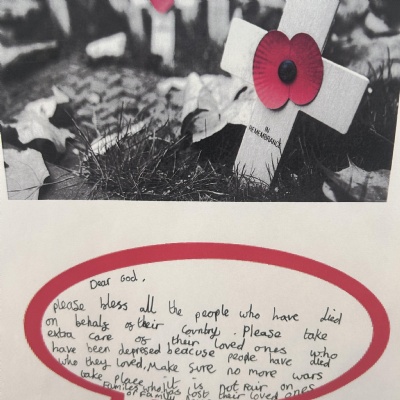 IN
REMEMBRANCE
Dear God,
please bless all the people who have died
on behalg of their country. Please take
extra care of their loved ones who
have been depresed beacuse people have died
who they loved, Make sure no more wars
take place it is not fair on
families who has lost their loved ones
or family